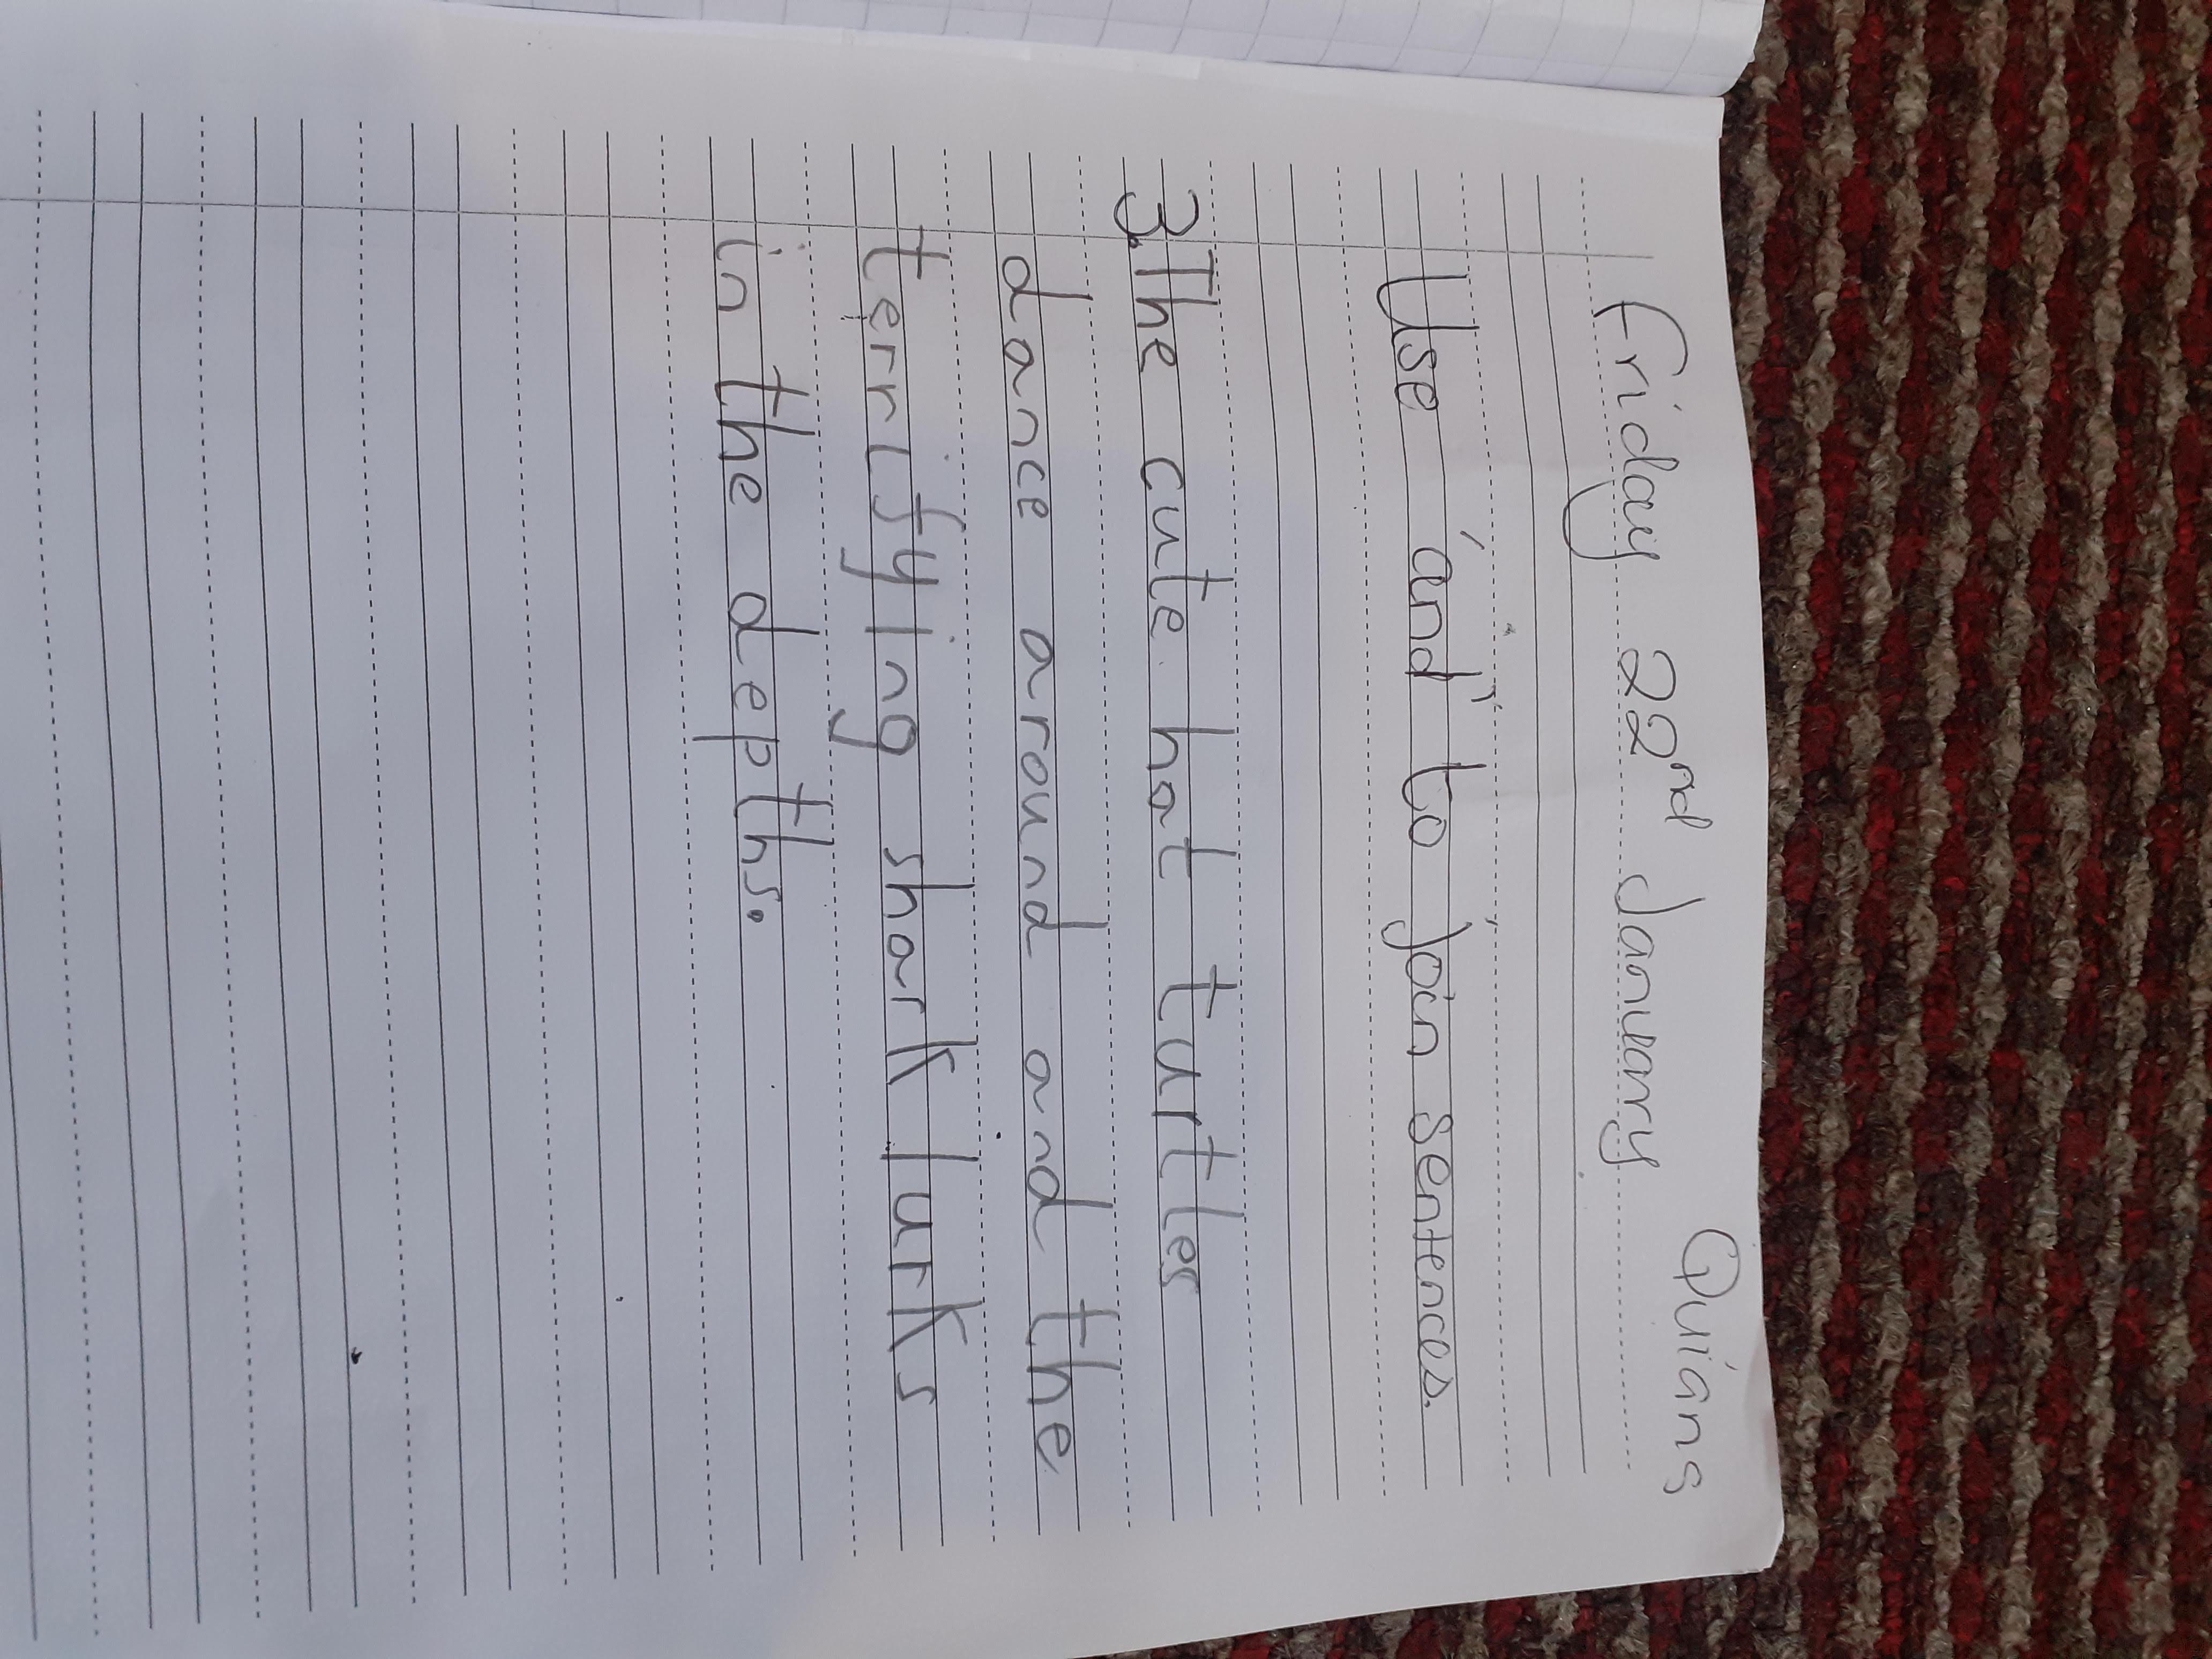 Quians
Friday 22nd January
Use 'and" to join sentences.
3.The cute hat turtles
dance around and the
terrifying shark lurks
in the depths.